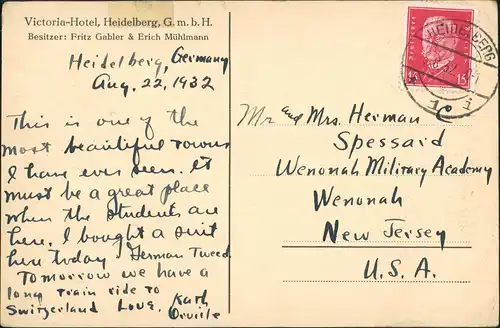 Victoria-Hotel, Heidelberg, G.m.b.H.
Besitzer: Fritz Gabler & Erich Mühlmann
Heidelberg, Germany
Aug. 22, 1932
This is one of the
most beautiful towns
I have ever seen. It
must be a great place
when the students are
here. I bought a suit
here today - German Tweed.
Tomorrow we have a
long train ride to
Switzerland Love, Karl
Orville
HEIDELBERG
15 15
Mr and Mrs. Herman
Spessard
Wenonah Military Academy
Wenonah
New Jersey
U.S.A.